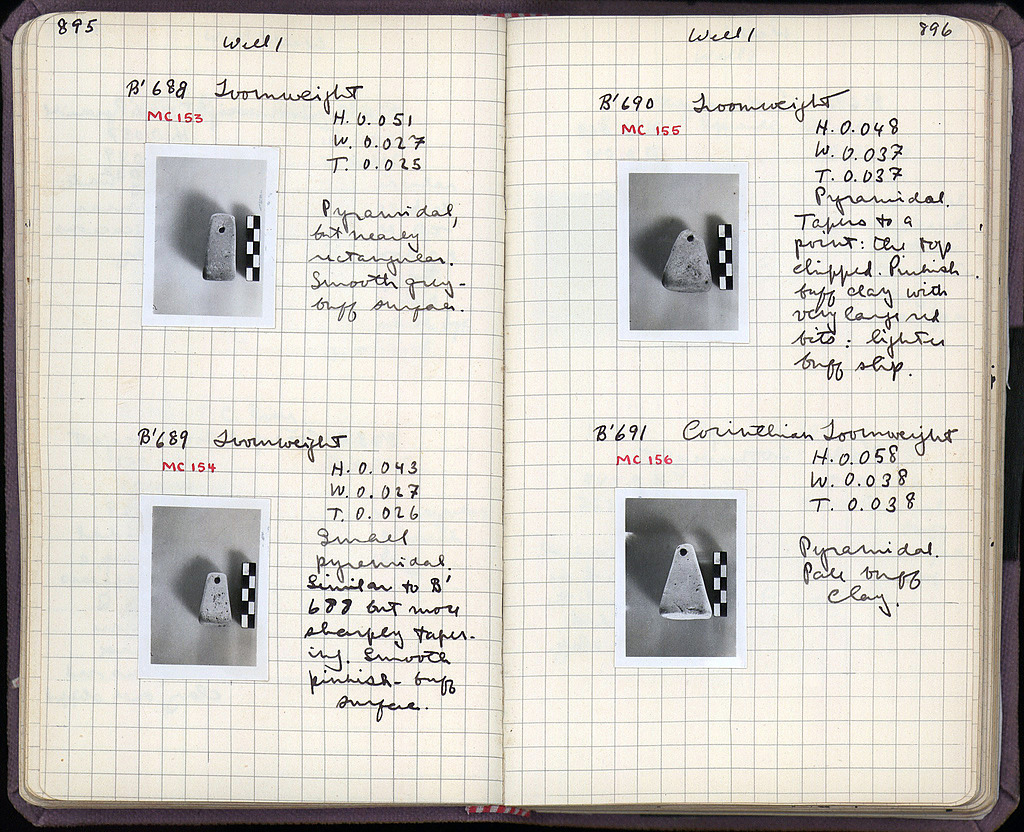 895
Well 1
B'688 Loomweight
MC 153
H. 0.051
W. 0.027
T. 0.025
Pyramidal,
but nearly
rectangular.
Smooth grey-
buff surface.
B'689 Loomweight
MC 154
H. 0.043
W. 0.027
T. 0.026
Small
pyramidal.
Similar to B'
688 but more
sharply taper-
ing. Smooth
pinkish-buff
surface.
Well 1
896
B'690 Loomweight
MC 155
H. 0.048
W. 0.037
T. 0.037
Pyramidal.
Tapers to a
point: the top
chipped. Pinkish
buff clay with
very large red
bits: lighter
buff slip.
B'691 Corinthian Loomweight
MC 156
H. 0.058
W. 0.038
T. 0.038
Pyramidal.
Pale buff
clay.